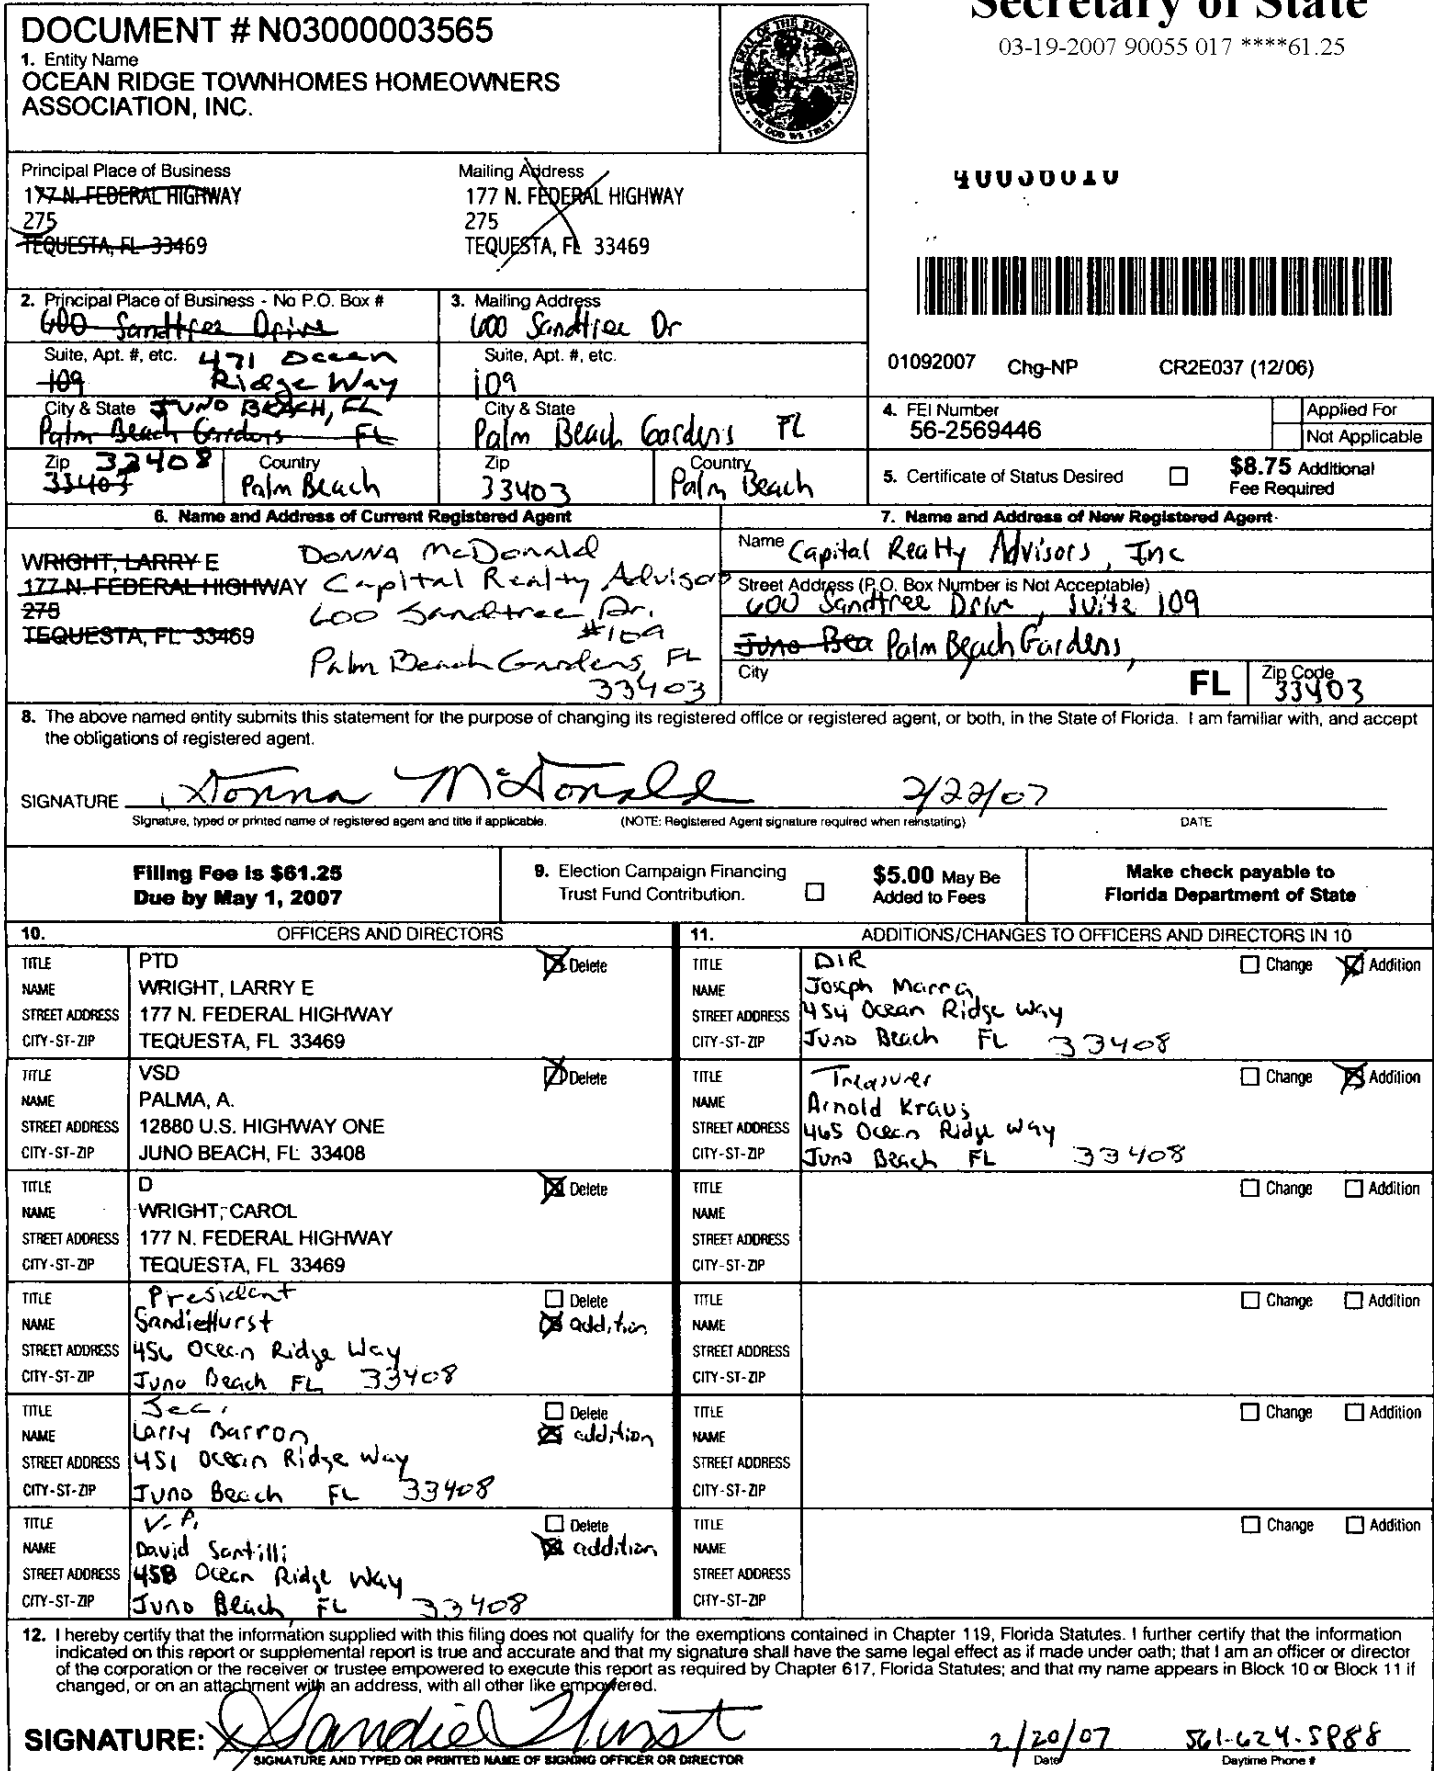 Secretary of State
03-19-2007 90055 017 ****61.25
DOCUMENT # N03000003565
1. Entity Name
OCEAN RIDGE TOWNHOMES HOMEOWNERS
ASSOCIATION, INC.
GREAT SEAL OF THE STATE OF FLORIDA
IN GOD WE TRUST
Principal Place of Business
177 N. FEDERAL HIGHWAY
275
TEQUESTA, FL 33469
Mailing Address
177 N. FEDERAL HIGHWAY
275
TEQUESTA, FL 33469
40036010
2. Principal Place of Business - No P.O. Box #
600 Sandtree Drive
Suite, Apt. #, etc. 471 Ocean
109 Ridge Way
City & State JUNO BEACH, FL
Palm Beach Gardens FL
Zip 33408
33403
Country
Palm Beach
3. Mailing Address
600 Sandtree Dr
Suite, Apt. #, etc.
109
City & State
Palm Beach Gardens FL
Zip
33403
Country
Palm Beach
01092007 Chg-NP CR2E037 (12/06)
4. FEI Number
56-2569446
Applied For
Not Applicable
5. Certificate of Status Desired
$8.75 Additional
Fee Required
6. Name and Address of Current Registered Agent
WRIGHT, LARRY E
177 N. FEDERAL HIGHWAY
275
TEQUESTA, FL 33469
Donna McDonald
Capital Realty Advisors
600 Sandtree Dr.
#109
Palm Beach Gardens, FL
33403
7. Name and Address of New Registered Agent
Name Capital Realty Advisors, Inc
Street Address (P.O. Box Number is Not Acceptable)
600 Sandtree Drive, Suite 109
Juno Bea Palm Beach Gardens,
City
FL
Zip Code
33403
8. The above named entity submits this statement for the purpose of changing its registered office or registered agent, or both, in the State of Florida. I am familiar with, and accept
the obligations of registered agent.
SIGNATURE Donna McDonald 2/22/07
Signature, typed or printed name of registered agent and title if applicable. (NOTE: Registered Agent signature required when reinstating) DATE
Filing Fee is $61.25
Due by May 1, 2007
9. Election Campaign Financing
Trust Fund Contribution.
$5.00 May Be
Added to Fees
Make check payable to
Florida Department of State
10. OFFICERS AND DIRECTORS
TITLE PTD Delete
NAME WRIGHT, LARRY E
STREET ADDRESS 177 N. FEDERAL HIGHWAY
CITY-ST-ZIP TEQUESTA, FL 33469
TITLE VSD Delete
NAME PALMA, A.
STREET ADDRESS 12880 U.S. HIGHWAY ONE
CITY-ST-ZIP JUNO BEACH, FL 33408
TITLE D Delete
NAME WRIGHT, CAROL
STREET ADDRESS 177 N. FEDERAL HIGHWAY
CITY-ST-ZIP TEQUESTA, FL 33469
TITLE President Delete
NAME Sandie Hurst addition
STREET ADDRESS 456 Ocean Ridge Way
CITY-ST-ZIP Juno Beach FL 33408
TITLE Sec. Delete
NAME Larry Barron addition
STREET ADDRESS 451 Ocean Ridge Way
CITY-ST-ZIP Juno Beach FL 33408
TITLE V.P. Delete
NAME David Santilli addition
STREET ADDRESS 458 Ocean Ridge Way
CITY-ST-ZIP Juno Beach, FL 33408
11. ADDITIONS/CHANGES TO OFFICERS AND DIRECTORS IN 10
TITLE DIR Change Addition
NAME Joseph Marra
STREET ADDRESS 454 Ocean Ridge Way
CITY-ST-ZIP Juno Beach FL 33408
TITLE Treasurer Change Addition
NAME Arnold Kraus
STREET ADDRESS 465 Ocean Ridge Way
CITY-ST-ZIP Juno Beach FL 33408
TITLE Change Addition
NAME
STREET ADDRESS
CITY-ST-ZIP
TITLE Change Addition
NAME
STREET ADDRESS
CITY-ST-ZIP
TITLE Change Addition
NAME
STREET ADDRESS
CITY-ST-ZIP
TITLE Change Addition
NAME
STREET ADDRESS
CITY-ST-ZIP
12. I hereby certify that the information supplied with this filing does not qualify for the exemptions contained in Chapter 119, Florida Statutes. I further certify that the information
indicated on this report or supplemental report is true and accurate and that my signature shall have the same legal effect as if made under oath; that I am an officer or director
of the corporation or the receiver or trustee empowered to execute this report as required by Chapter 617, Florida Statutes; and that my name appears in Block 10 or Block 11 if
changed, or on an attachment with an address, with all other like empowered.
SIGNATURE: Sandie Hurst 2/20/07 561-624-5888
SIGNATURE AND TYPED OR PRINTED NAME OF SIGNING OFFICER OR DIRECTOR Date Daytime Phone #